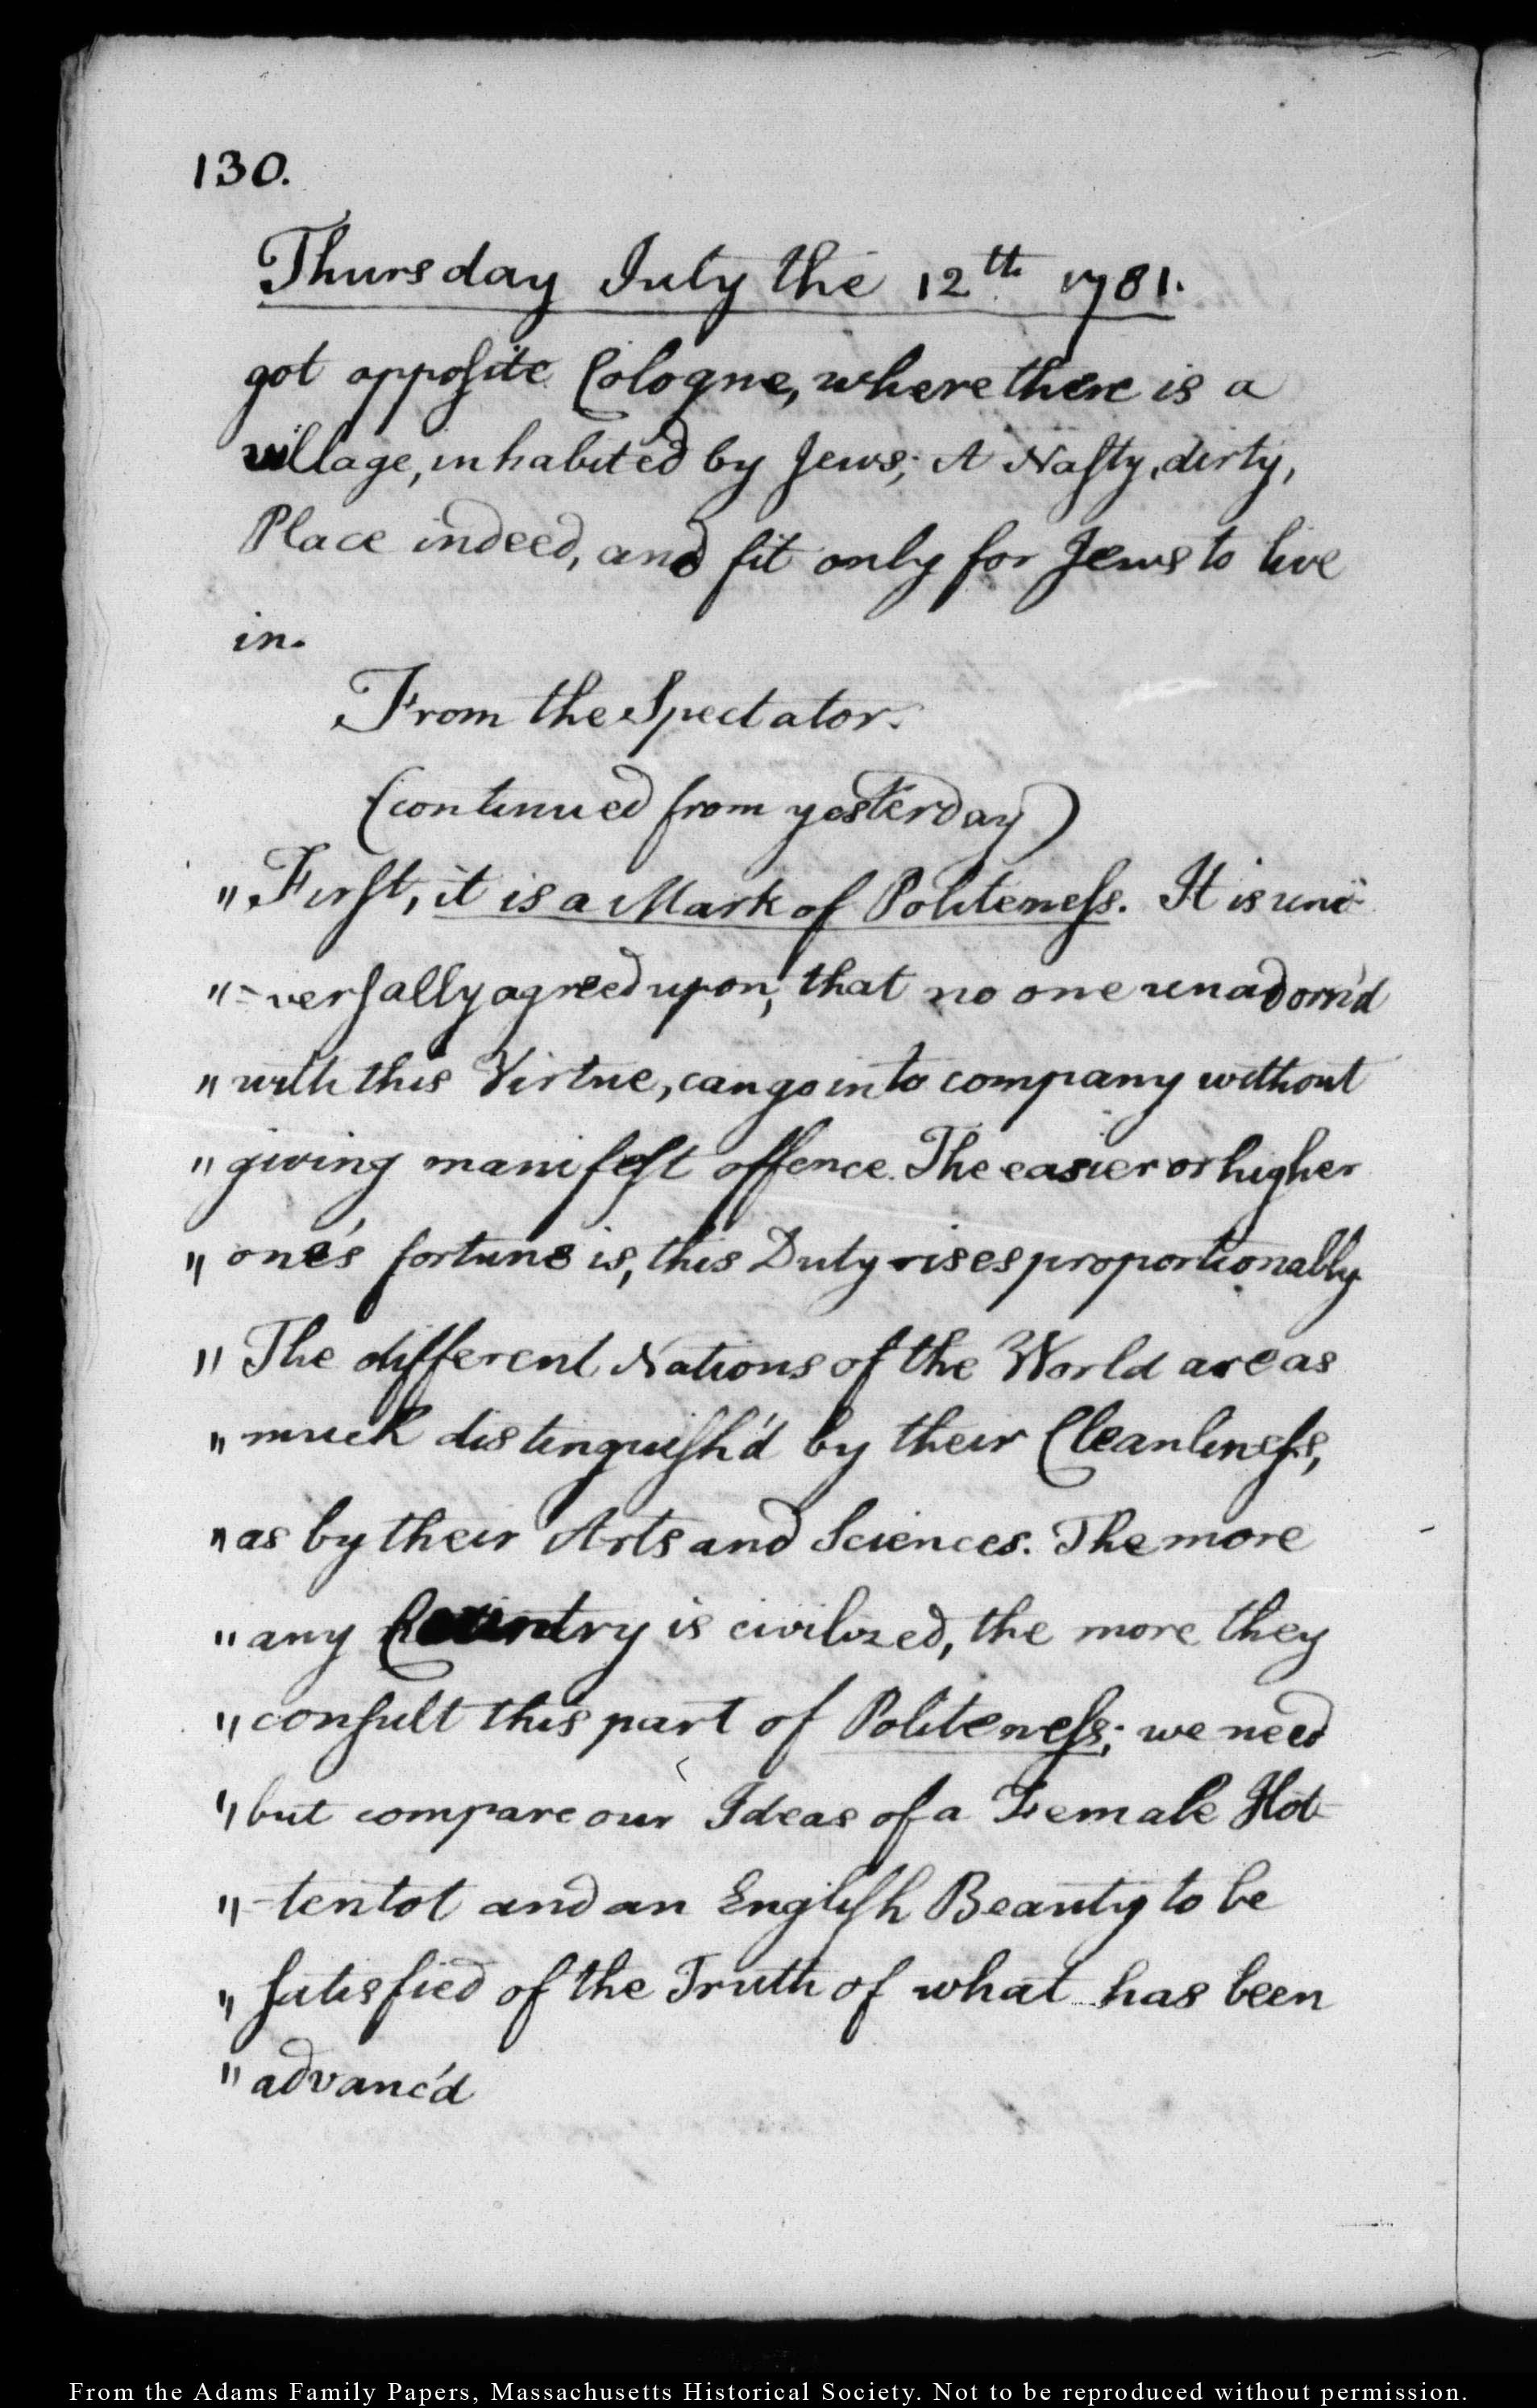 130.
Thursday July the 12th 1781.
got opposite Cologne, where there is a
village, inhabited by Jews; A Nasty, dirty,
Place indeed, and fit only for Jews to live
in.
From the Spectator.
(continued from yesterday)
" First, it is a Mark of Politeness. It is uni-
"-versally agreed upon, that no one unadorn'd
" with this Virtue, can go into company without
" giving manifest offence. The easier or higher
" one's fortune is, this Duty rises proportionally
" The different Nations of the World are as
" much distinguish'd by their Cleanliness,
" as by their Arts and Sciences. The more
" any Country is civilized, the more they
" consult this part of Politeness; we need
" but compare our Ideas of a Female Hot-
"-tentot and an English Beauty to be
" satisfied of the Truth of what has been
" advanc'd
From the Adams Family Papers, Massachusetts Historical Society. Not to be reproduced without permission.